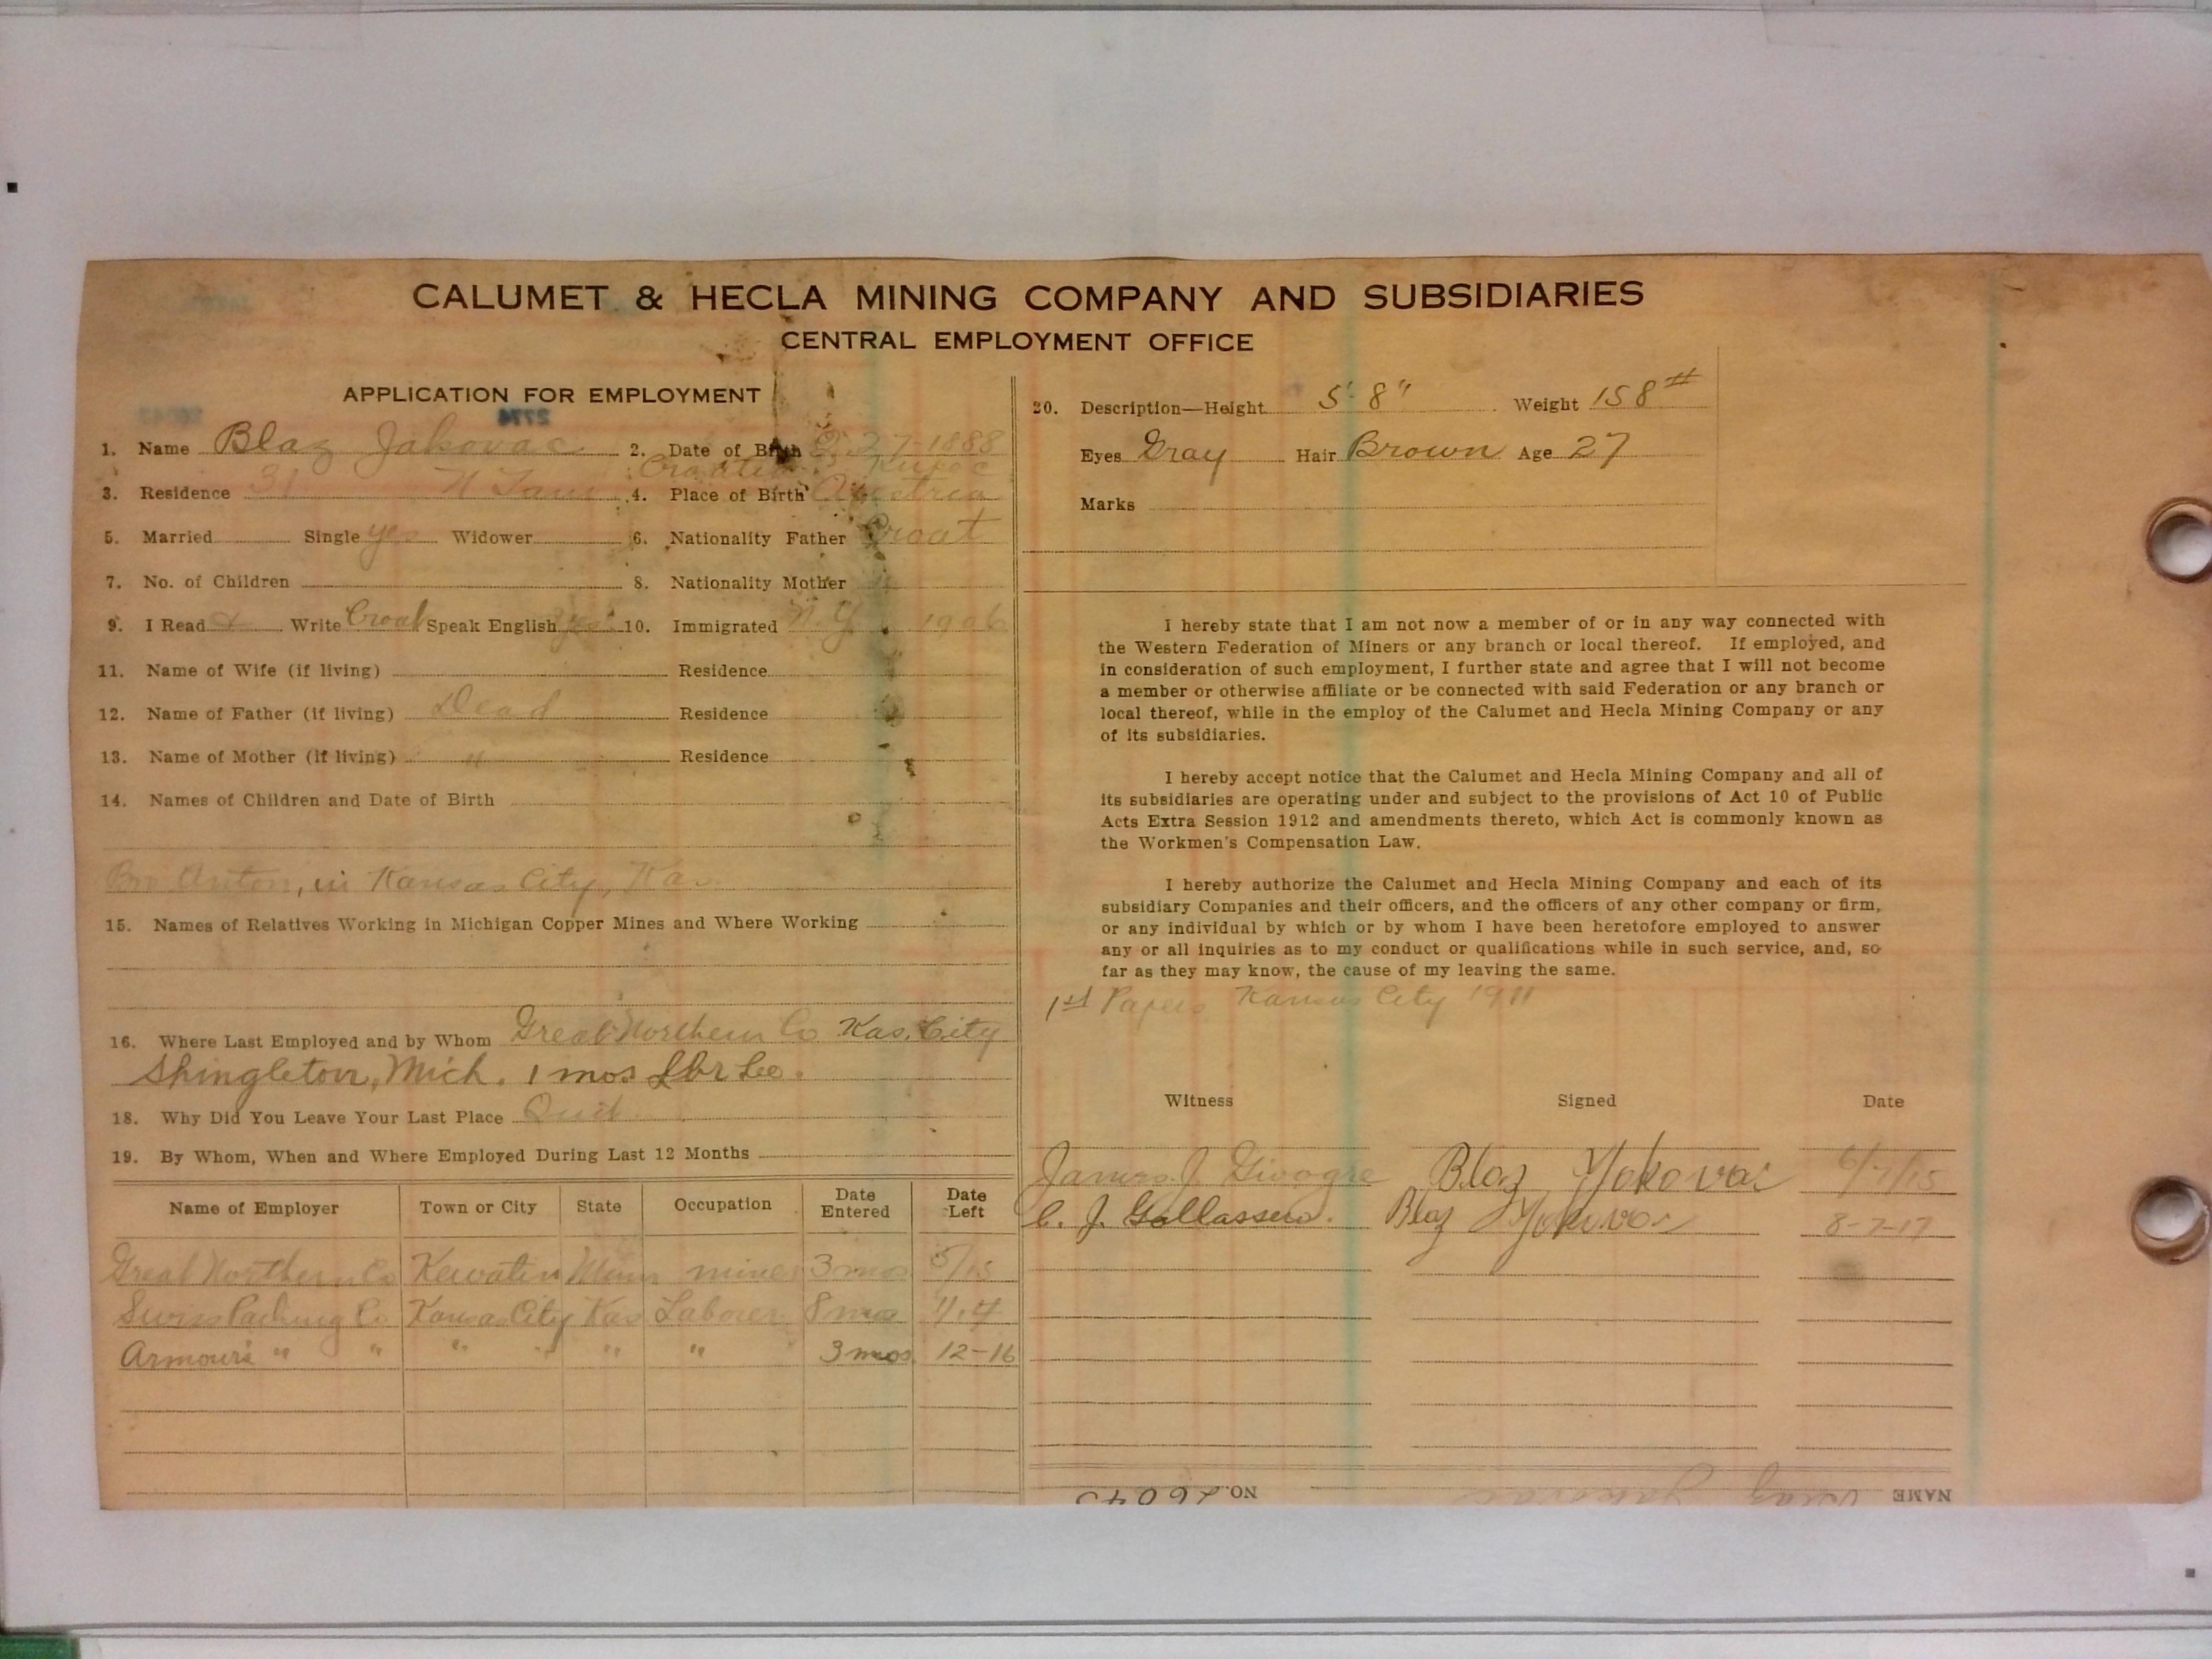 CALUMET & HECLA MINING COMPANY AND SUBSIDIARIES
CENTRAL EMPLOYMENT OFFICE
APPLICATION FOR EMPLOYMENT
2774
1. Name Blaz Jakovac 2. Date of Birth 27-1888
Croatia
3. Residence 31 4. Place of Birth Austria
5. Married Single yes Widower 6. Nationality Father Croat
7. No. of Children 8. Nationality Mother "
9. I Read & Write Croat Speak English yes 10. Immigrated N.Y. 1906
11. Name of Wife (if living) Residence
12. Name of Father (if living) Dead Residence
13. Name of Mother (if living) " Residence
14. Names of Children and Date of Birth
Bro Anton, in Kansas City, Kas.
15. Names of Relatives Working in Michigan Copper Mines and Where Working
16. Where Last Employed and by Whom Great Northern Co Kas. City
Shingleton, Mich. 1 mos Lbr Co.
18. Why Did You Leave Your Last Place Quit
19. By Whom, When and Where Employed During Last 12 Months
Name of Employer Town or City State Occupation Date Entered Date Left
Great Northern Co Kewatin Minn miner 3 mos 5/15
Packing Co Kansas City Kas Laborer 8 mos
Armours " " " " " " 3 mos. 12-16
20. Description—Height 5' 8" Weight 158#
Eyes Gray Hair Brown Age 27
Marks
I hereby state that I am not now a member of or in any way connected with
the Western Federation of Miners or any branch or local thereof. If employed, and
in consideration of such employment, I further state and agree that I will not become
a member or otherwise affiliate or be connected with said Federation or any branch or
local thereof, while in the employ of the Calumet and Hecla Mining Company or any
of its subsidiaries.
I hereby accept notice that the Calumet and Hecla Mining Company and all of
its subsidiaries are operating under and subject to the provisions of Act 10 of Public
Acts Extra Session 1912 and amendments thereto, which Act is commonly known as
the Workmen's Compensation Law.
I hereby authorize the Calumet and Hecla Mining Company and each of its
subsidiary Companies and their officers, and the officers of any other company or firm,
or any individual by which or by whom I have been heretofore employed to answer
any or all inquiries as to my conduct or qualifications while in such service, and, so
far as they may know, the cause of my leaving the same.
1st Papers Kansas City 1911
Witness Signed Date
James J. Blaz Yakovac 6/7/15
C. J. Blaz Yakovac 8-7-17
NAME Blaz Jakovac NO.